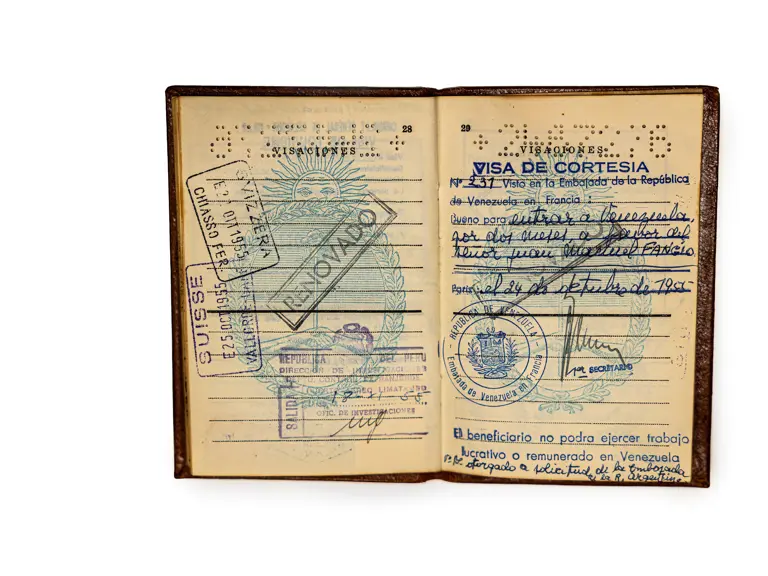 28
VISACIONES
SVIZZERA
CHIASSO FER
SUISSE
E25.OCT1955
RENOVADO
REPUBLICA DEL PERU
DIRECCION DE
SALIDA
13-11-55
OFIC. DE INVESTIGACIONES
29
VISACIONES
VISA DE CORTESIA
Nº 231 Visto en la Embajada de la República
de Venezuela en Francia :
Bueno para entrar a Venezuela,
por dos meses a favor del
señor Juan Manuel FANGIO
Paris, el 24 de octubre de 1955
REPUBLICA DE VENEZUELA
Embajada de Venezuela en Francia
por SECRETARIO
El beneficiario no podra ejercer trabajo
lucrativo o remunerado en Venezuela
otorgado a solicitud de la Embajada
de la R. Argentina